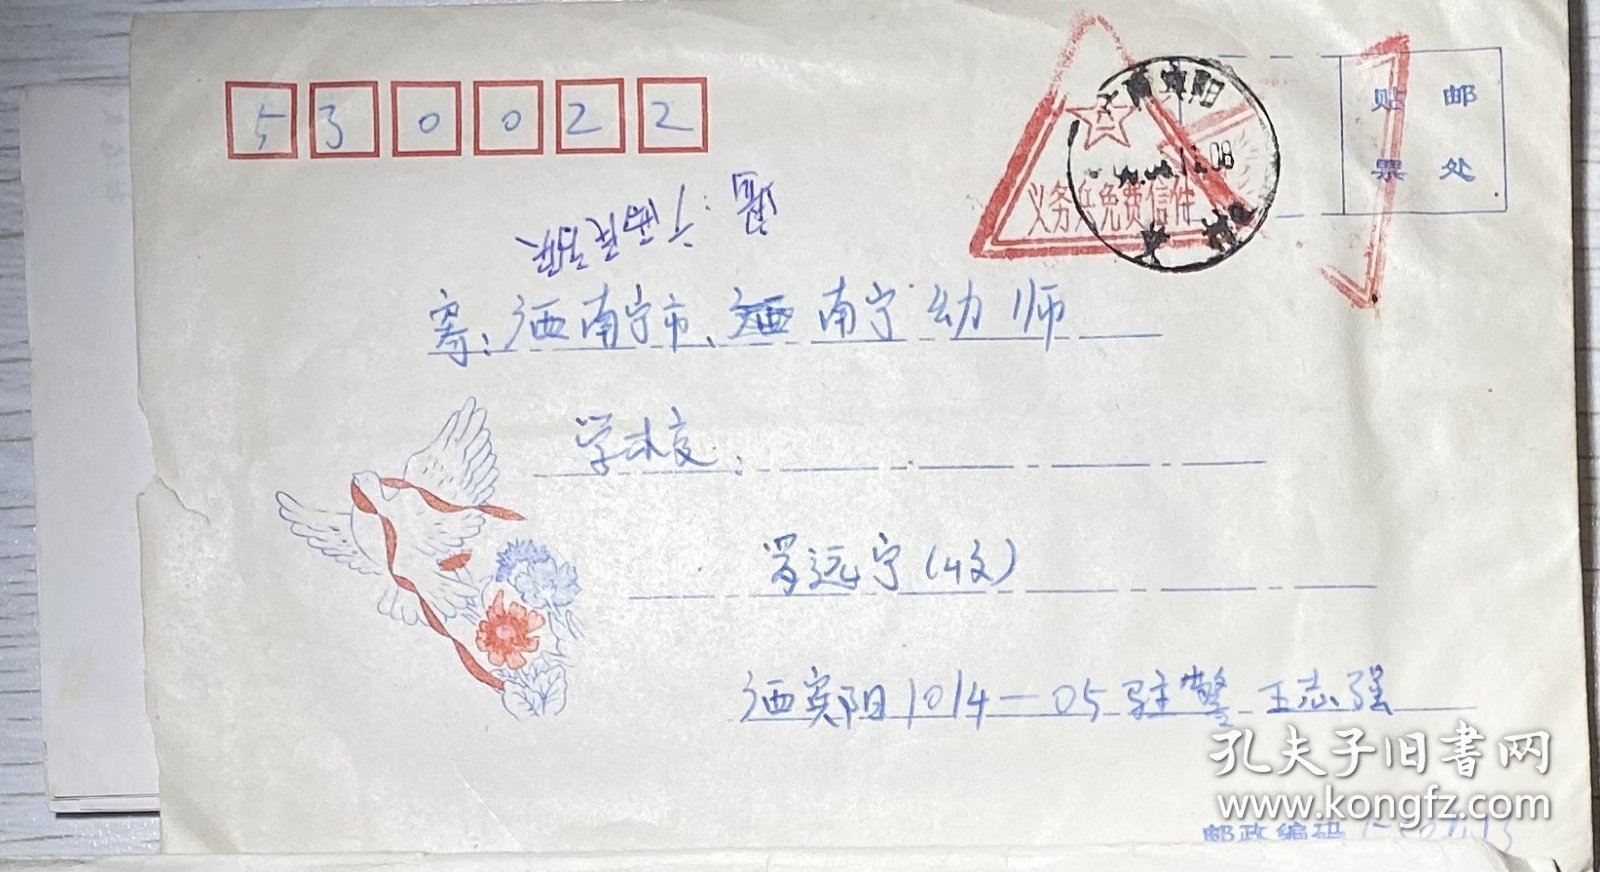 530022
贴 邮
票 处
义务兵免费信件
寄:广西南宁市、广西南宁幼师
学校
罗远宁(收)
广西宾阳1014-05驻警 王志强
孔夫子旧书网
www.kongfz.com
邮政编码